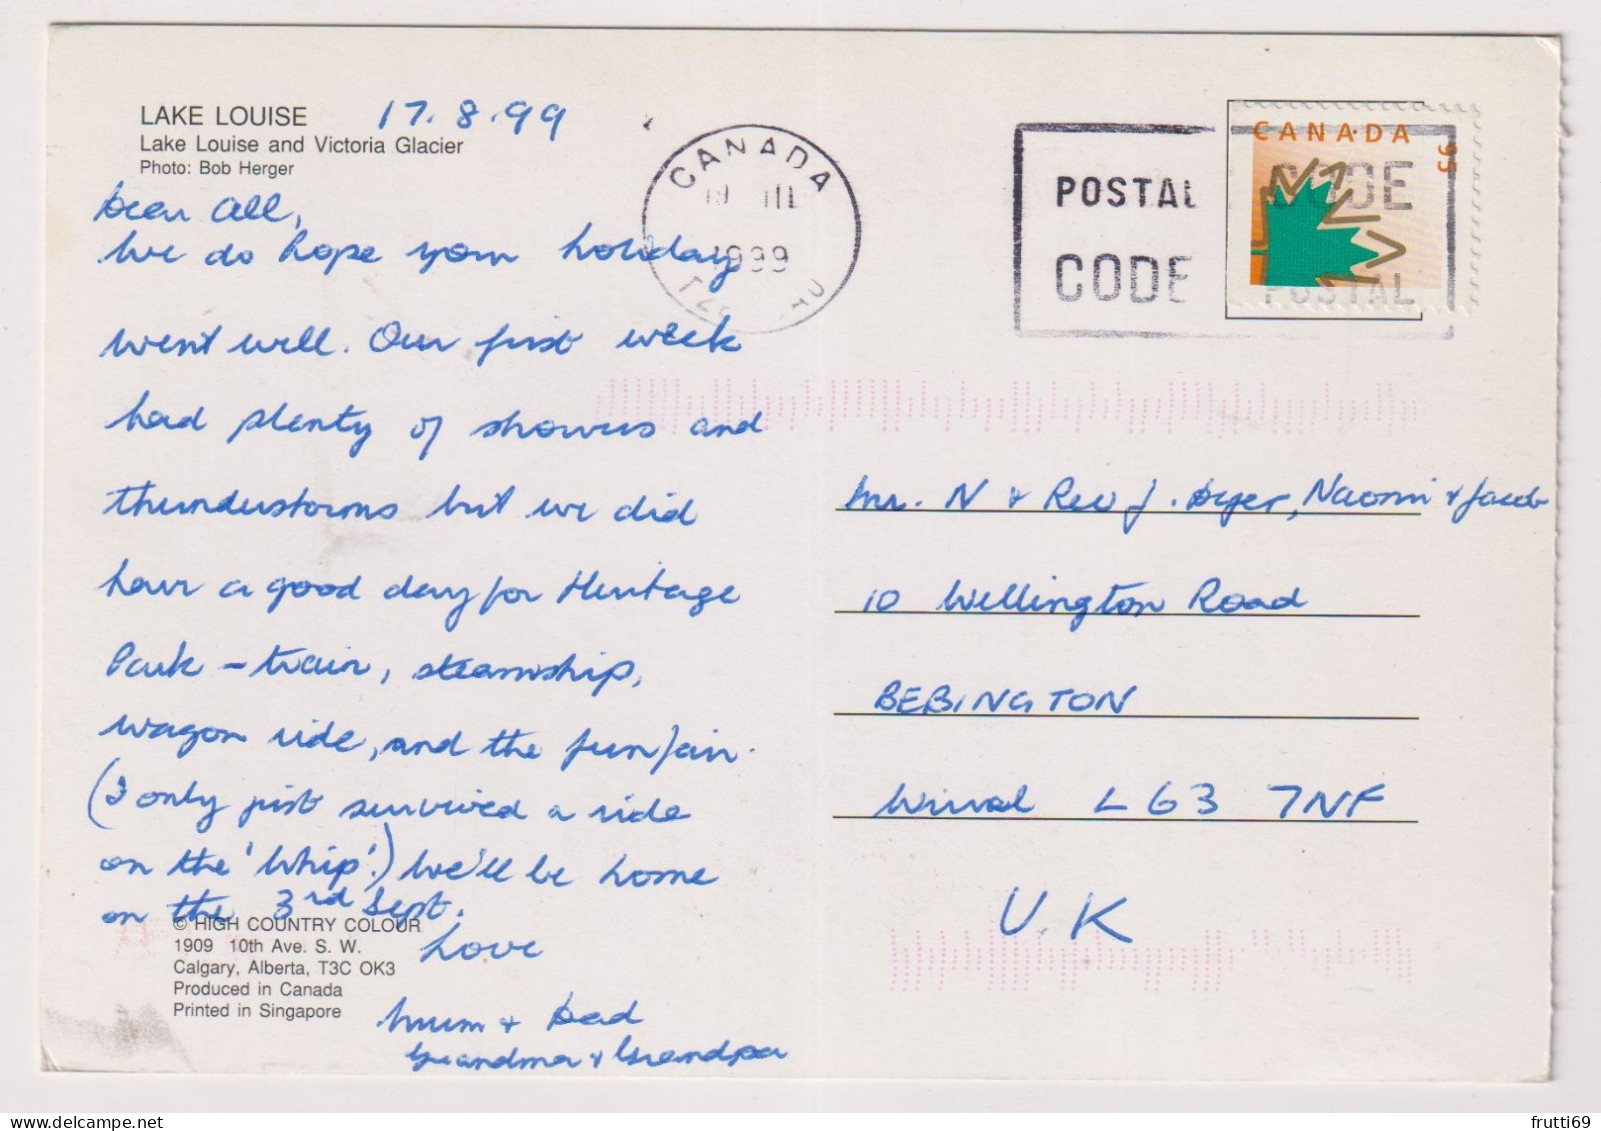 LAKE LOUISE 17.8.99
Lake Louise and Victoria Glacier
Photo: Bob Herger
Dear All,
We do hope your holiday
went well. Our first week
had plenty of showers and
thunderstorms but we did
have a good day for Heritage
Park - train, steamship,
wagon ride, and the funfair.
(I only just survived a ride
on the 'Whip'.) We'll be home
on the 3rd Sept.
Love
Mum + Dad
Grandma + Grandpa
© HIGH COUNTRY COLOUR
1909 10th Ave. S. W.
Calgary, Alberta, T3C OK3
Produced in Canada
Printed in Singapore
CANADA
1999
POSTAL
CODE
CANADA 95
CODE
POSTAL
Mr. N + Rev J. Dyer, Naomi + Jacob
10 Wellington Road
BEBINGTON
Wirral L63 7NF
U.K
frutti69